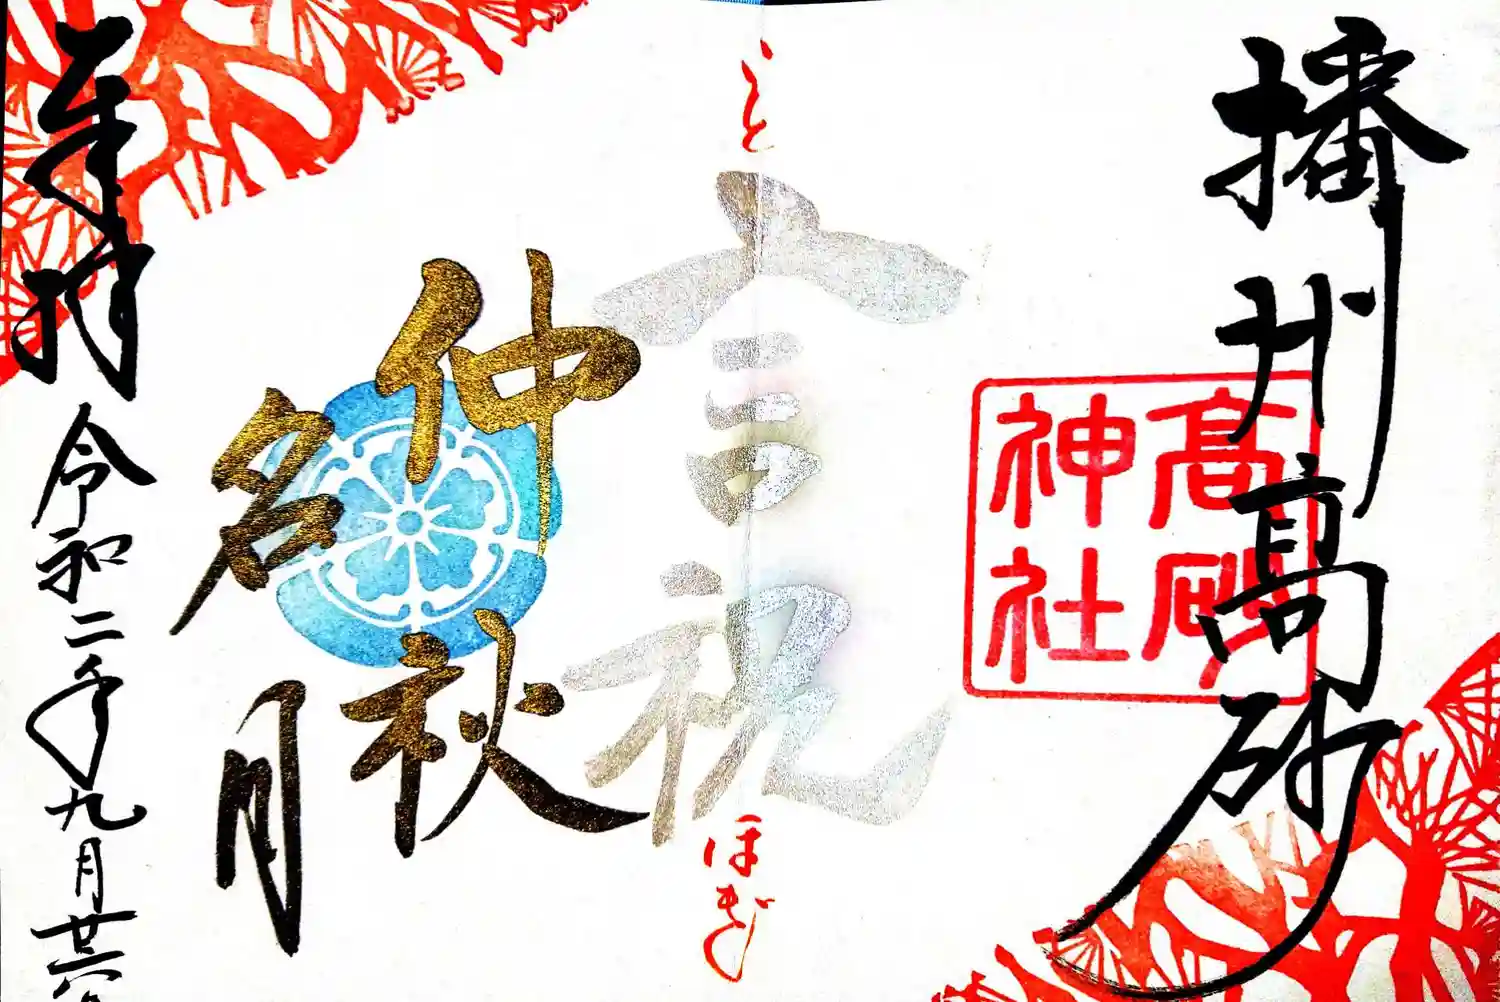 播州高砂
高砂
神社
こと
言祝
ほぎ
仲秋
名月
奉拝
令和二年九月廿六